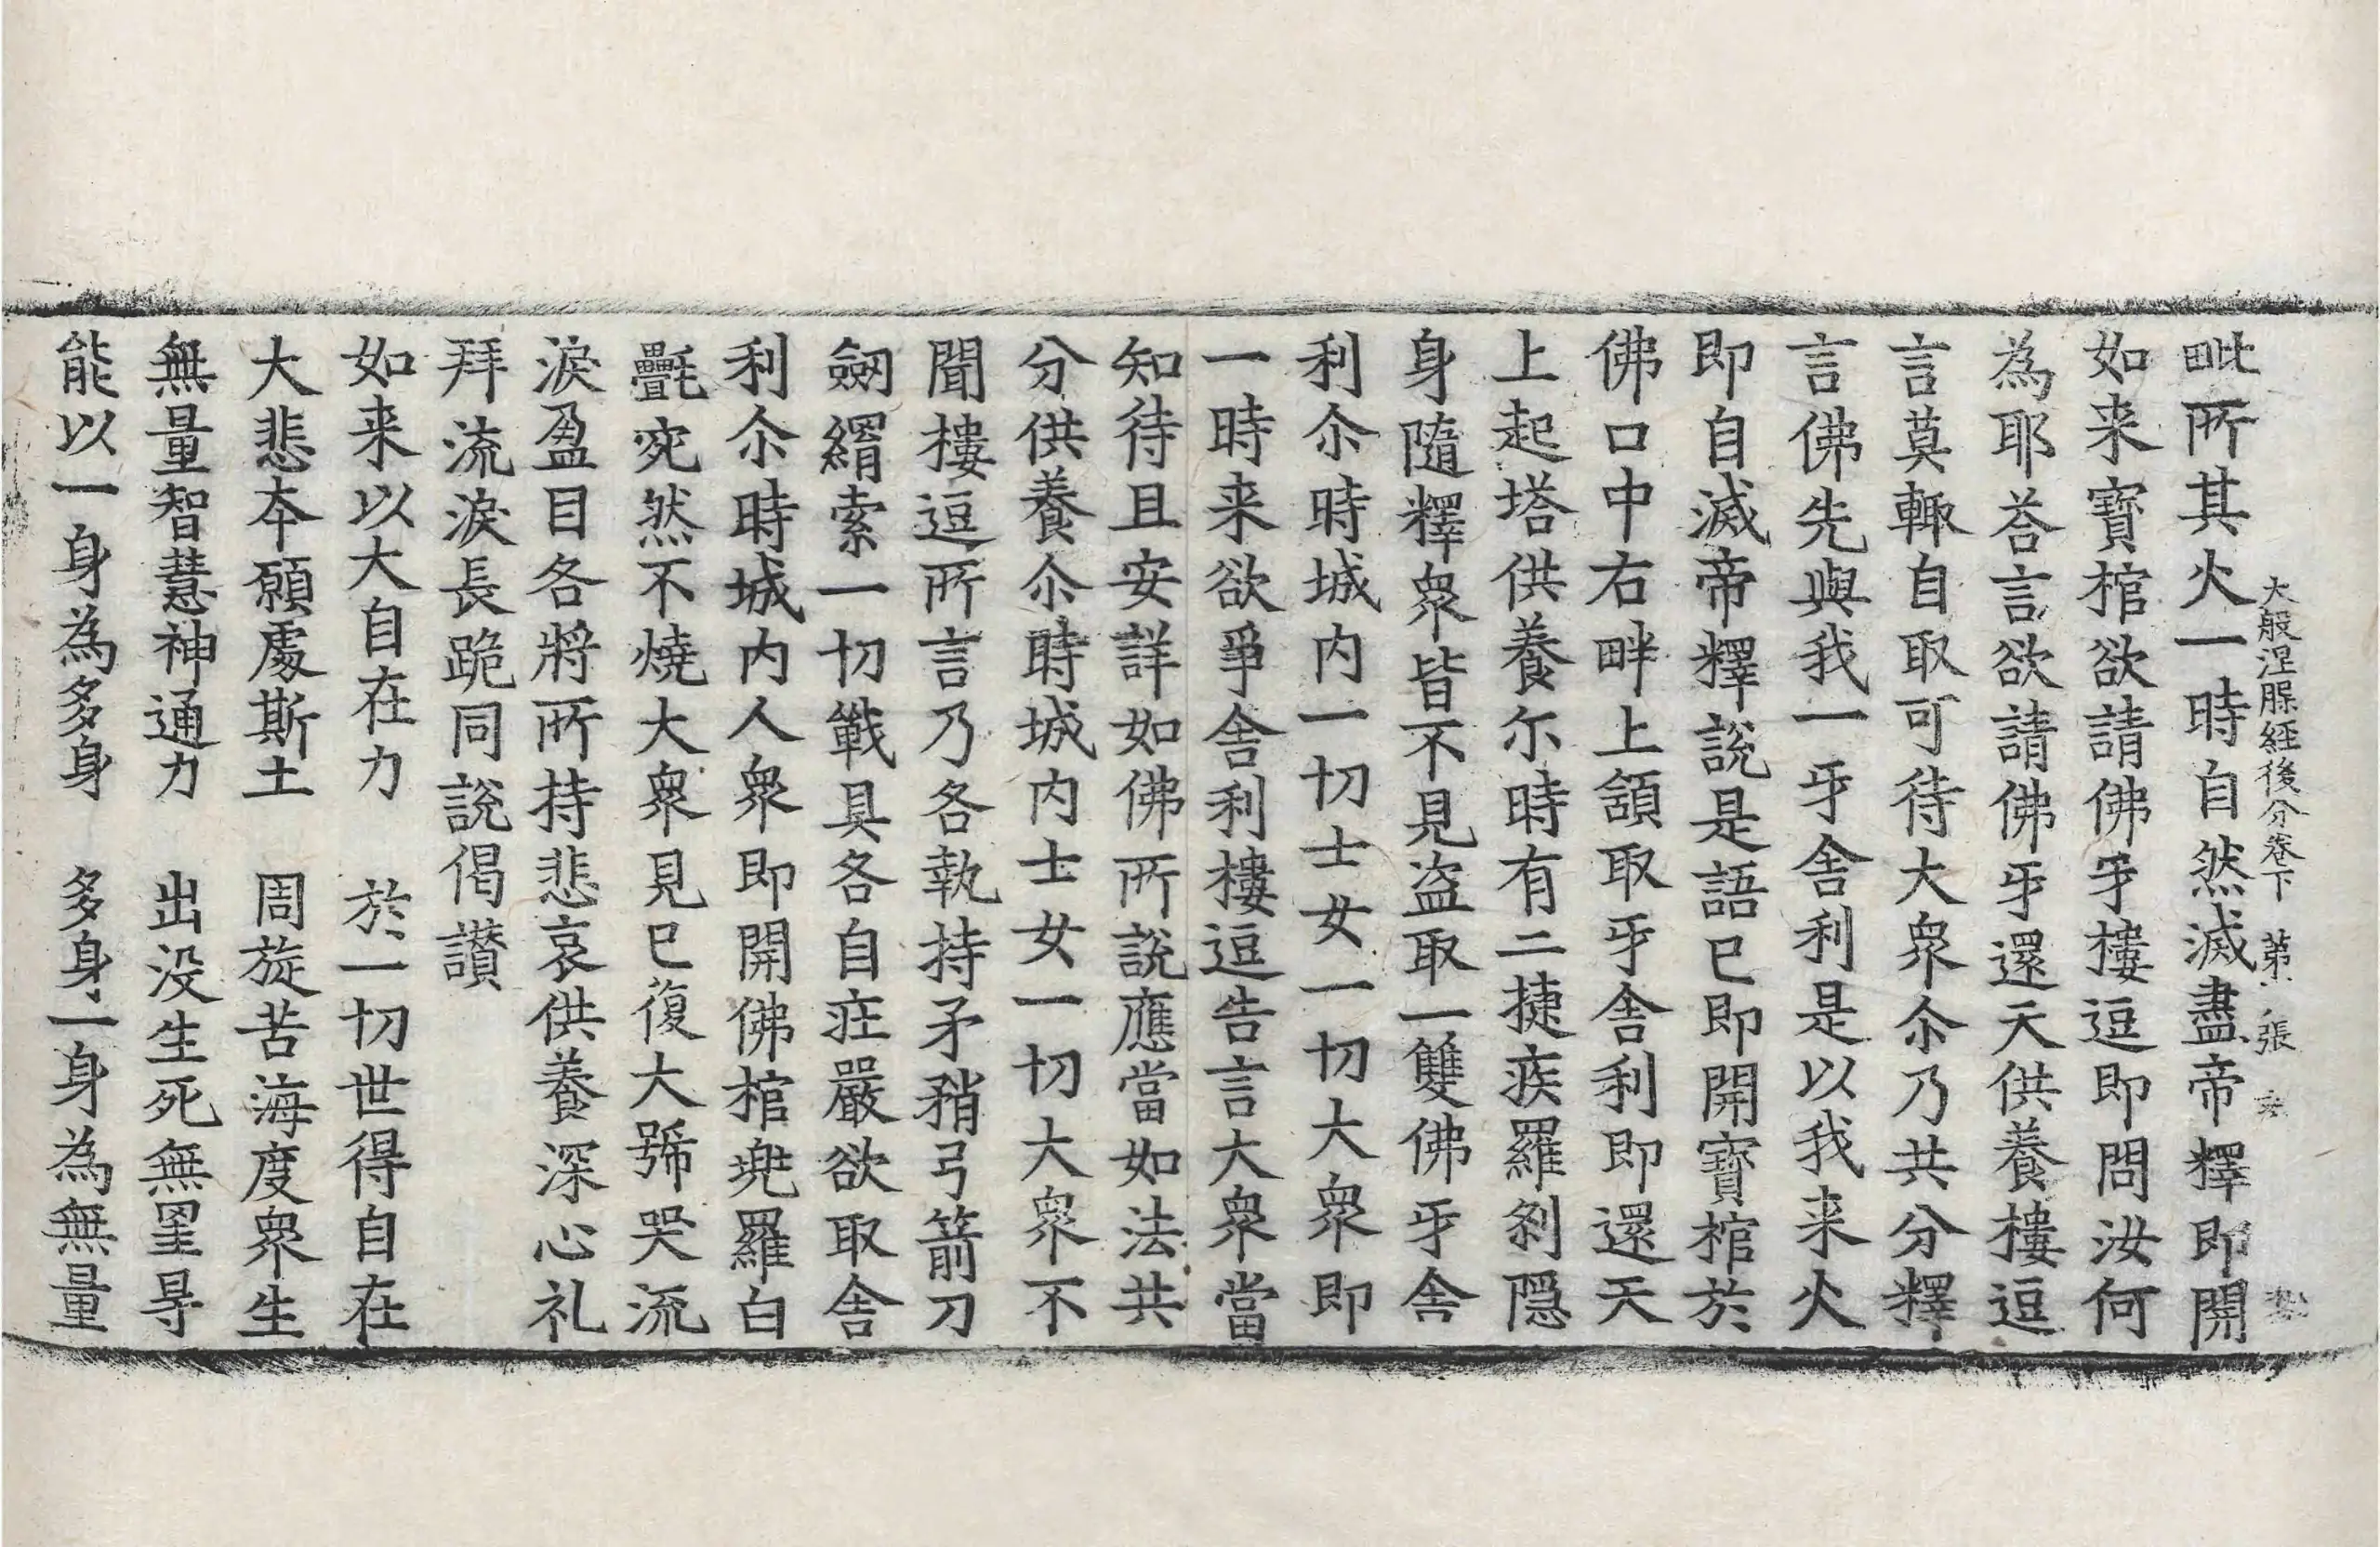 大般涅槃經後分卷下 第 張
毗所其火一時自然滅盡帝釋即開
如来寶棺欲請佛牙樓逗即問汝何
為耶荅言欲請佛牙還天供養樓逗
言莫輙自取可待大衆尒乃共分釋
言佛先與我一牙舍利是以我来火
即自滅帝釋說是語已即開寶棺於
佛口中右畔上頷取牙舍利即還天
上起塔供養尔時有二捷疾羅剎隱
身隨釋衆皆不見盜取一雙佛牙舍
利尒時城内一切士女一切大衆即
一時来欲爭舍利樓逗告言大衆當
知待且安詳如佛所說應當如法共
分供養尒時城内士女一切大衆不
聞樓逗所言乃各執持矛矟弓箭刀
劒羂索一切戰具各自庄嚴欲取舍
利尒時城内人衆即開佛棺兠羅白
㲲宛然不燒大衆見已復大號哭流
淚盈目各將所持悲哀供養深心礼
拜流淚長跪同說偈讃
如来以大自在力 於一切世得自在
大悲夲願處斯土 周旋苦海度衆生
無量智慧神通力 出没生死無罣㝵
能以一身為多身 多身一身為無量